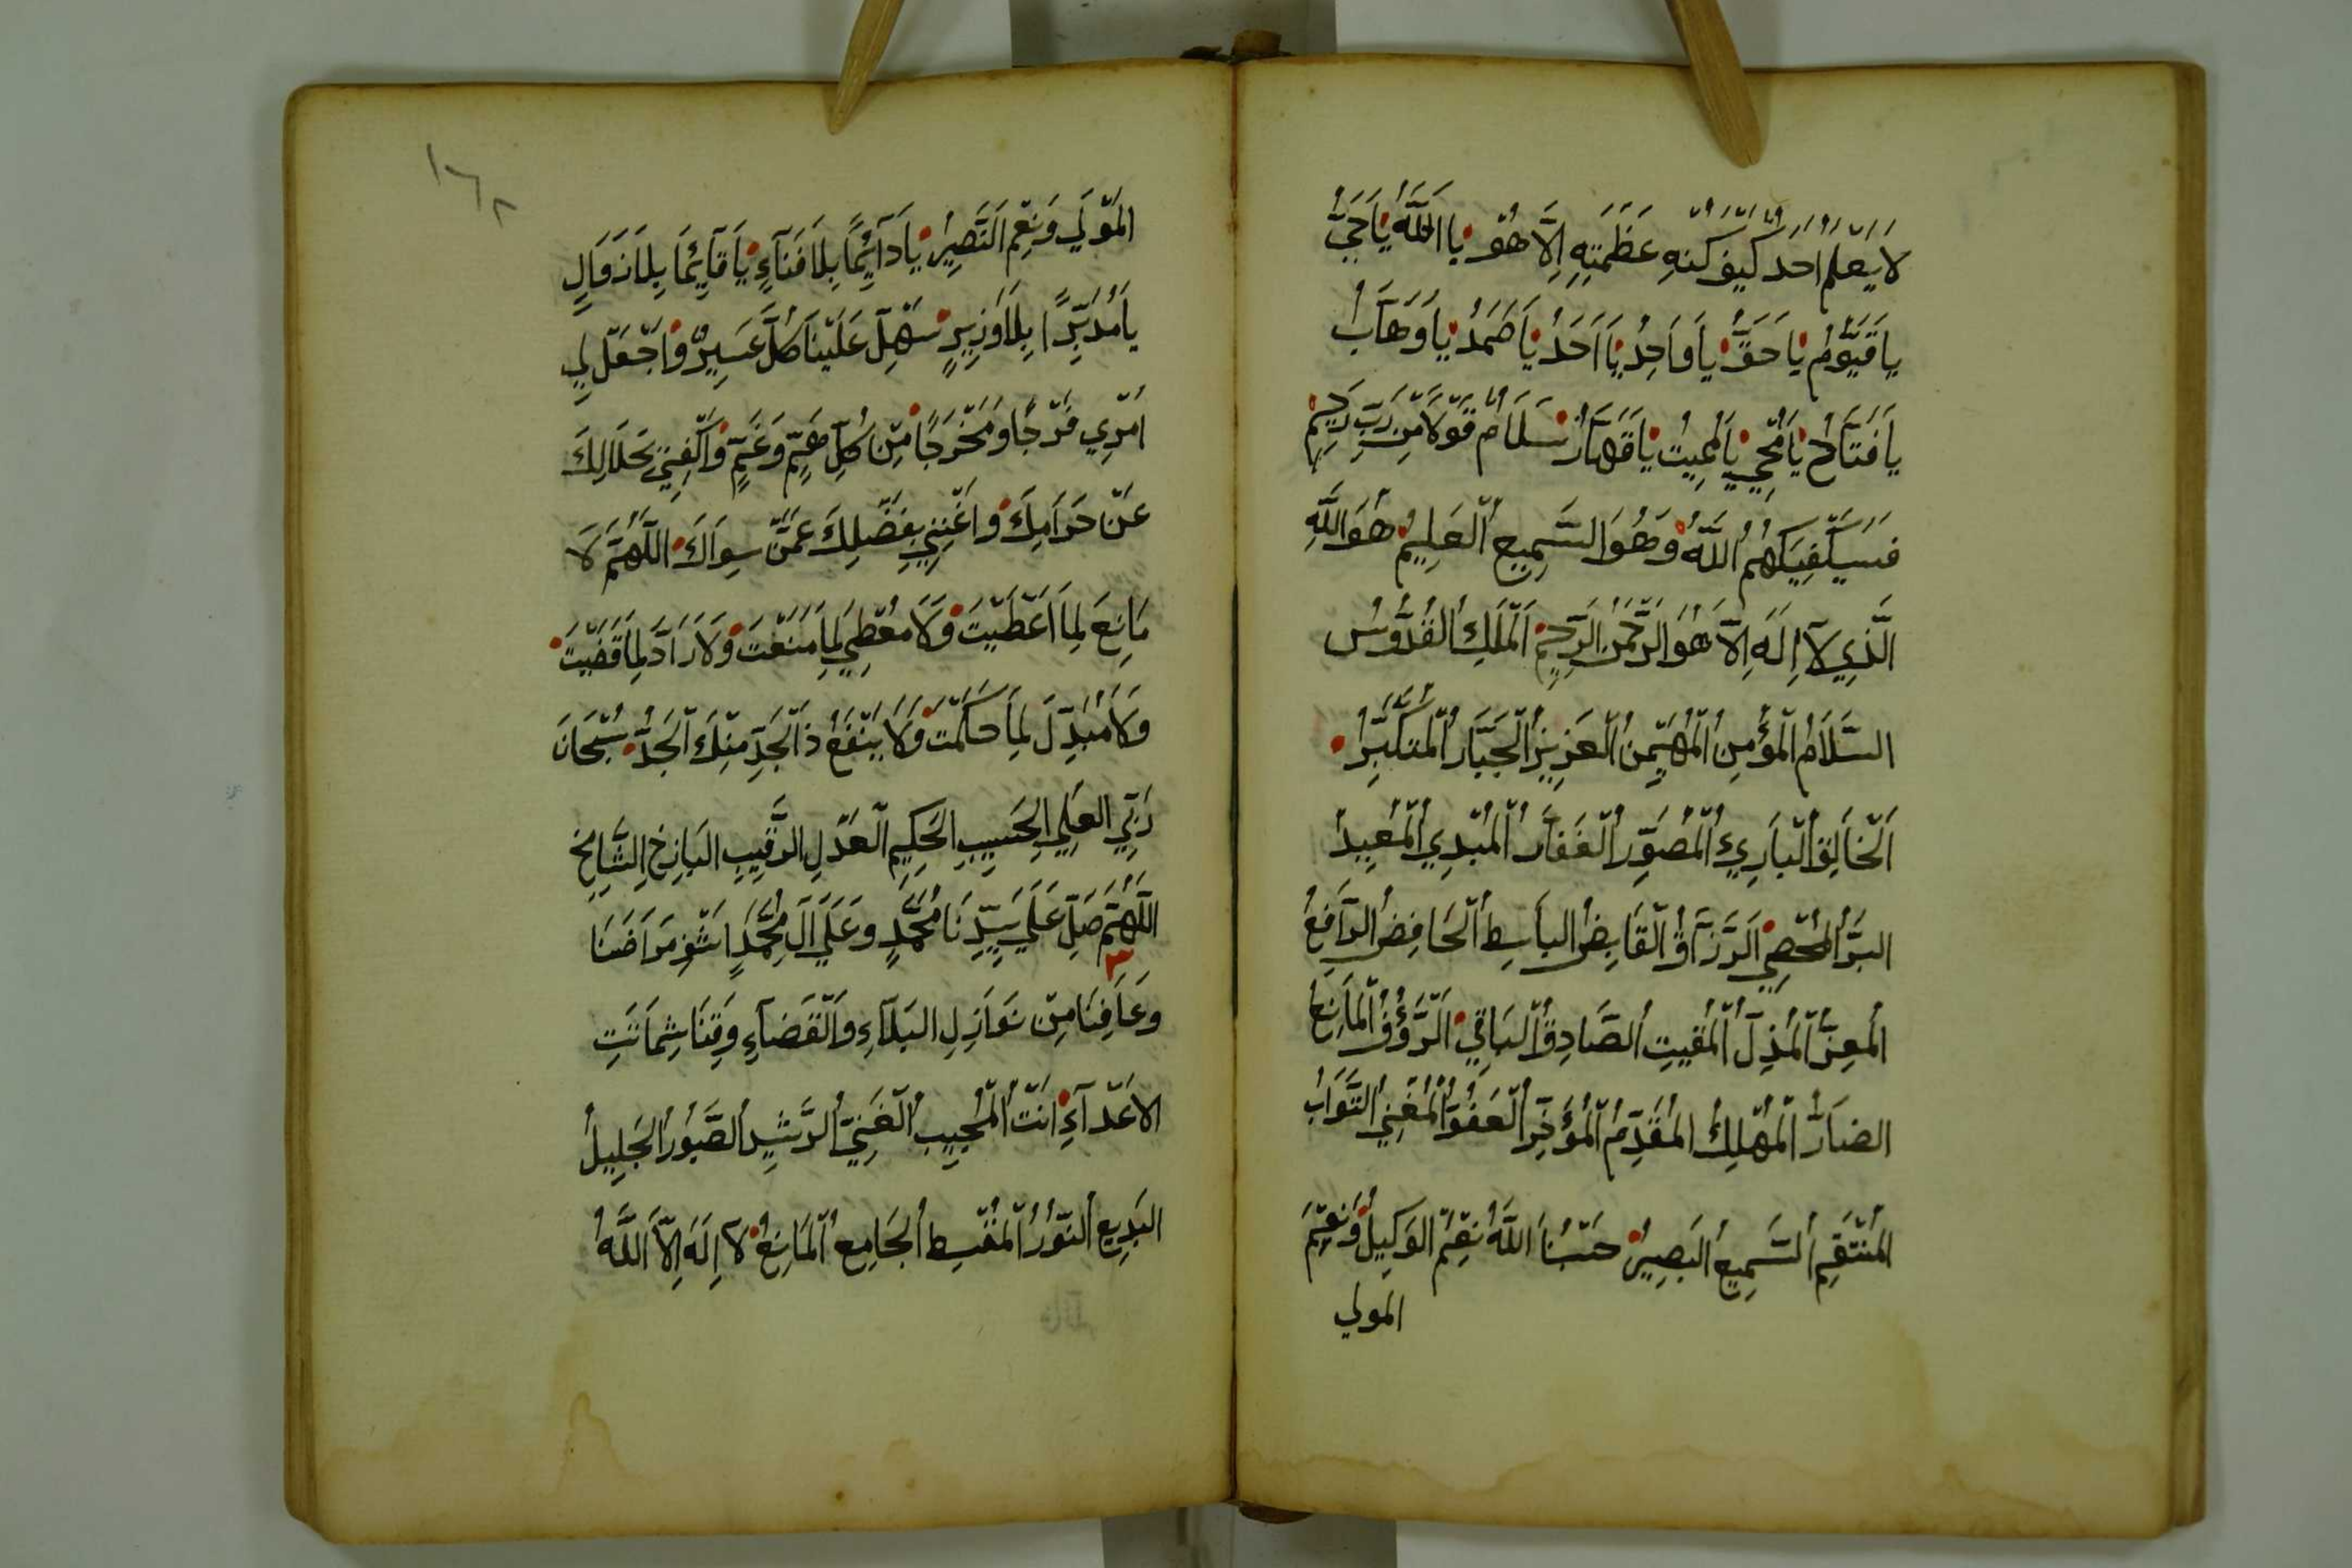 لَا يَعْلَمُ اَحَدٌ كَيْفَ كُنْهِ عَظَمَتِهِ اِلَّا هُوَ يَا اَللَّهُ يَا حَيُّ
يَا قَيُّوْمُ يَا حَقُّ يَا وَاحِدُ يَا اَحَدُ يَا صَمَدُ يَا وَهَّابُ
يَا فَتَّاحُ يَا مُحْيِي يَا مُمِيتُ يَا قَهَّارُ سَلَامٌ قَوْلًا مِنْ رَبٍّ رَحِيمٍ
فَسَيَكْفِيكَهُمُ اللَّهُ وَهُوَ السَّمِيعُ الْعَلِيمُ هُوَ اللَّهُ
الَّذِي لَا اِلَهَ اِلَّا هُوَ الرَّحْمَنُ الرَّحِيمُ اَلْمَلِكُ الْقُدُّوسُ
السَّلَامُ الْمُؤْمِنُ الْمُهَيْمِنُ الْعَزِيزُ الْجَبَّارُ الْمُتَكَبِّرُ
اَلْخَالِقُ الْبَارِيُ الْمُصَوِّرُ الْغَفَّارُ الْمُبْدِي الْمُعِيدُ
الْبَرُّ الْمُحْصِي اَلرَّزَّاقُ الْقَابِضُ الْبَاسِطُ الْخَافِضُ الرَّافِعُ
الْمُعِزُّ الْمُذِلُّ الْمُقِيتُ الصَّادِقُ الْبَاقِي اَلرَّؤُفُ الْمَانِعُ
الضَّارُّ الْمُهْلِكُ الْمُقَدِّمُ الْمُؤَخِّرُ الْعَفُوُّ الْمُغْنِي التَّوَّابُ
الْمُنْتَقِمُ السَّمِيعُ الْبَصِيرُ حَسْبُنَا اللَّهُ نِعْمَ الْوَكِيلُ وَنِعْمَ
المولي
الْمَوْلَي وَنِعْمَ النَّصِيرُ يَا دَآئِمًا بِلَا فَنَآءٍ يَا قَآئِمًا بِلَا زَوَالٍ
يَا مُدَبِّرًا بِلَا وَزِيرٍ سَهِّلْ عَلَيْنَا كُلَّ عَسِيرٍ وَاجْعَلْ لِي
اَمْرِي فَرْجًا وَمَخْرَجًا مِنْ كُلِّ هَمٍّ وَغَمٍّ وَاكْفِنِي بِحَلَالِكَ
عَنْ حَرَامِكَ وَاغْنِنِي بِفَضْلِكَ عَمَّنْ سِوَاكَ اَللَّهُمَّ لَا
مَانِعَ لِمَا اَعْطَيْتَ وَلَا مُعْطِيَ لِمَا مَنَعْتَ وَلَا رَادَّ لِمَا قَضَيْتَ
وَلَا مُبَدِّلَ لِمَا حَكَمْتَ وَلَا يَنْفَعُ ذَا الْجَدِّ مِنْكَ الْجَدُّ سُبْحَانَ
رَبِّيَ الْعَلِيِّ الْحَسِيبِ الْحَكِيمِ الْعَدْلِ الرَّقِيبِ الْبَازِخِ الشَّامِخِ
اَللَّهُمَّ صَلِّ عَلَي سَيِّدِنَا مُحَمَّدٍ وَعَلَي آلِ مُحَمَّدٍ اشْفِ مَرَاضَنَا
٣
وَعَافِنَا مِنْ نَوَازِلِ الْبَلَآءِ وَالْقَضَآءِ وَقِنَا شِمَاتَتِ
الْاَعْدَآءِ اَنْتَ الْمُجِيبُ الْغَنِيُّ الرَّشِيدُ الصَّبُوْرُ الْجَلِيلُ
الْبَدِيعُ النُّوْرُ الْمُقْسِطُ الْجَامِعُ الْمَانِعُ لَا اِلَهَ اِلَّا اللَّهُ